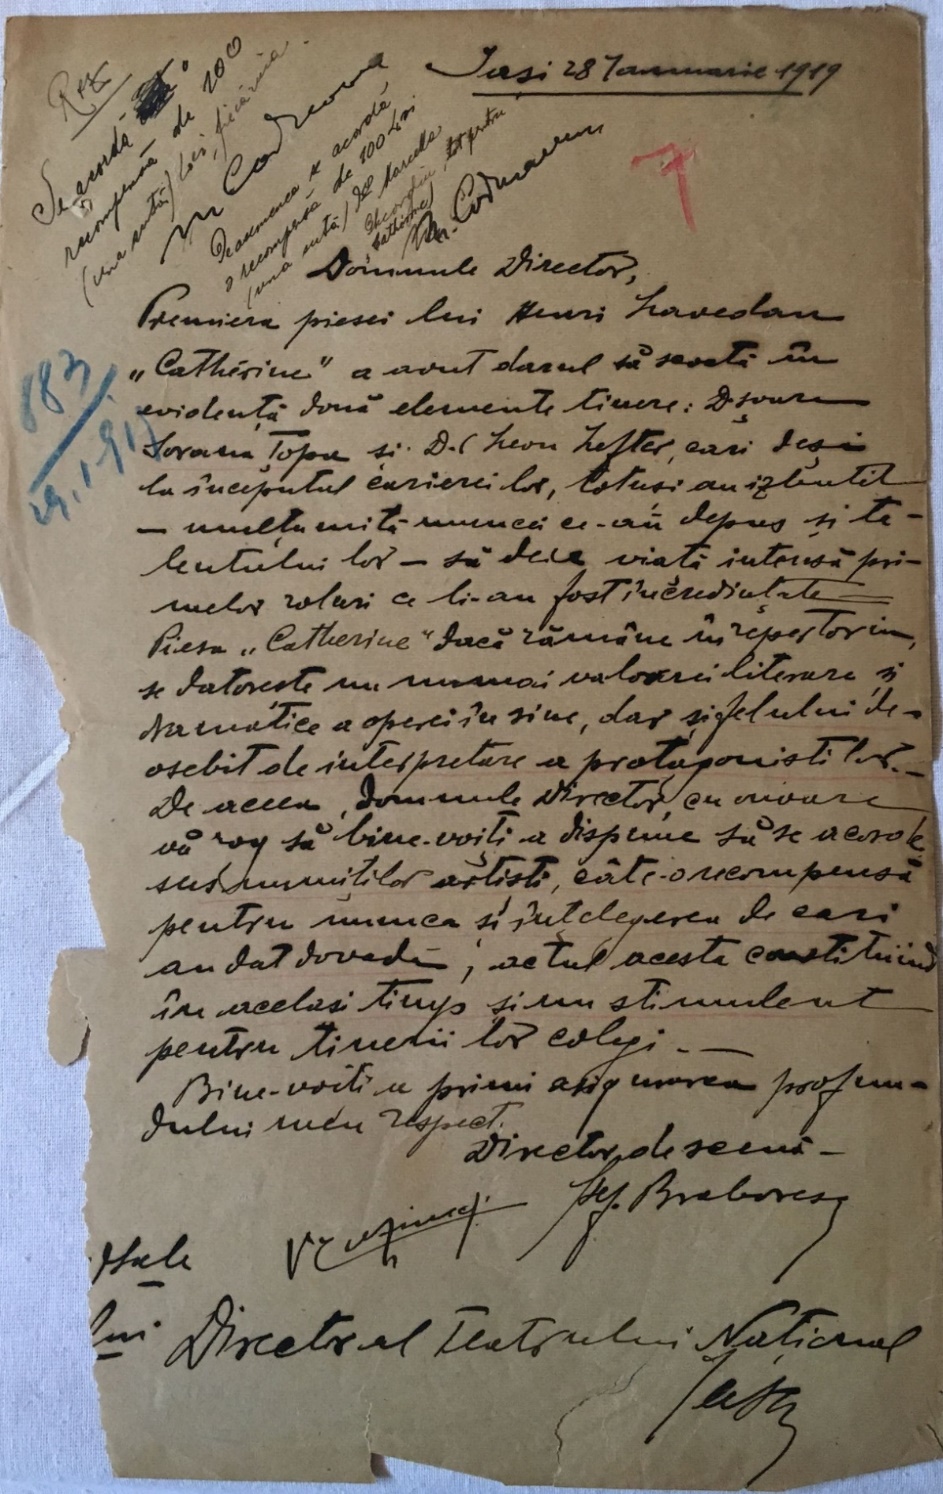 Rez
Se acordă o
recompensă de 100
(una sută) lei, fiecăruia.
M Codreanu
Deasemenea se acordă
o recompensă de 100 Lei
(una sută) Dlei Marcela
Gheorghiu tot pentru
„Catherine”
M. Codreanu
Iași 28 Ianuarie 1919
7
883
29.I.91
Domnule Director,
Premiera piesei lui Henri Lavedan
„Cathérine” a avut darul să scoată în
evidență două elemente tinere: Dșoara
Sorana Țopa și D-l Leon Lefter, cari deși
la începutul carierei lor, totuși au izbutit
– mulțumită muncei ce-au depus și ta-
lentului lor – să deie viată intensă pri-
melor roluri ce li-au fost încredințate
Piesa „Catherine” dacă rămâne în repertoriu,
se datorește nu numai valoarei literare și
dramatice a operei în sine, dar și felului de-
osebit de interpretare a protagoniștilor.–
De aceea, domnule Director, cu onoare
vă rog să bine-voiți a dispune să se acorde
susnumiților artiști, câte-o recompensă
pentru munca și înțelegerea de cari
au dat dovadă, actul acesta constituind
în acelasi timp și un stimulent
pentru tinerii lor colegi.–
Bine-voiți a primi asigurarea profun-
dului meu respect.
Director de scenă –
Șt. Braborescu
Dsale
lui Directorul Teatrului Național
Iași